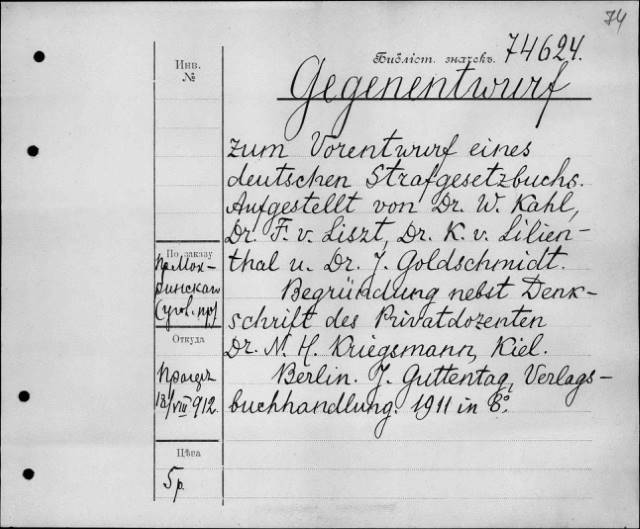 74
Библіот. значекъ. 74624.
Инв.
№
Gegenentwurf
zum Vorentwurf eines
deutschen Strafgesetzbuchs.
Aufgestellt von Dr. W. Kahl,
Dr. F. v. Liszt, Dr. K. v. Lilien-
thal u. Dr. J. Goldschmidt.
Begründung nebst Denk-
schrift des Privatdozenten
Dr. N. H. Kriegsmann, Kiel.
Berlin. J. Guttentag, Verlags-
buchhandlung. 1911 in 8º.
По заказу
пр. Мок-
ринскаго
(угол. пр)
Откуда
18/VIII 912.
Цѣна
5 р.